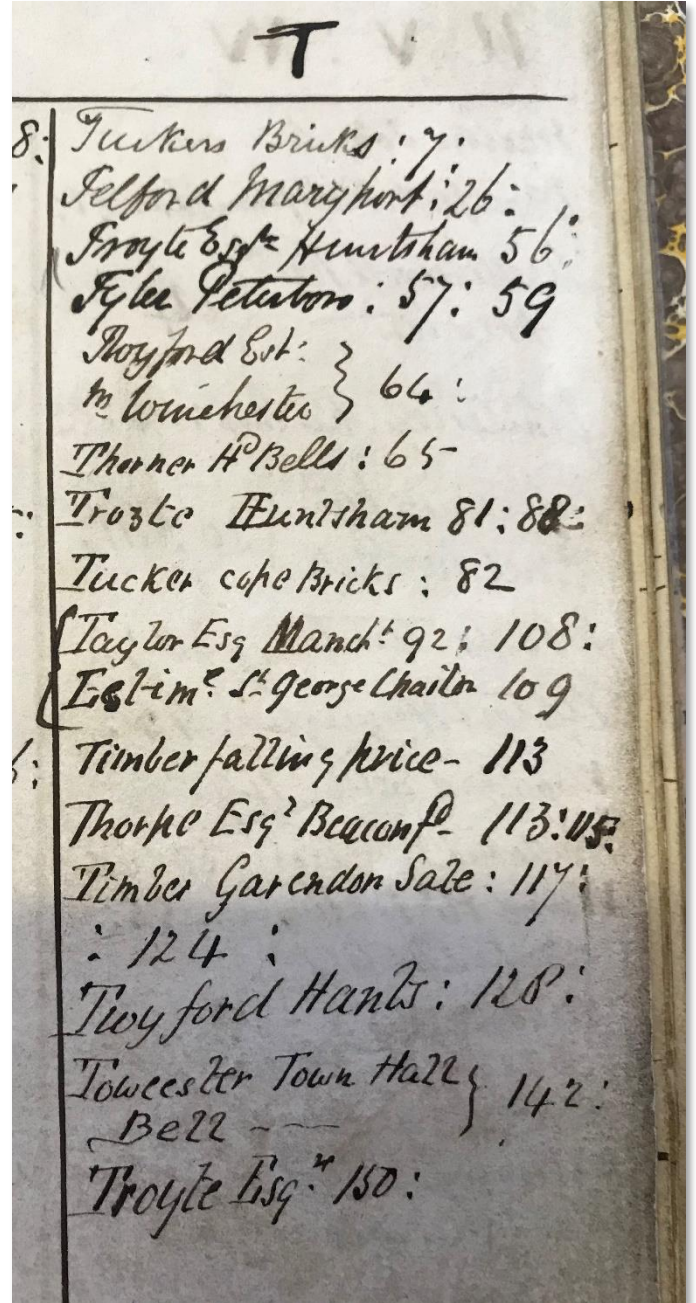 T
8:
Tuckers Bricks : 7:
Telford Maryport : 26:
Troyte Esqre Huntsham 56:
Tyler Peterboro : 57: 59
Twyford Est:
nr Winchester } 64:
Thorner Hd Bells : 65
Troyte Huntsham 81: 88:
Tucker cope Bricks : 82
Taylor Esq Mancht 92: 108:
Estime St George Charlton 109
Timber falling price - 113
Thorpe Esqr Beaconfd - 113: 115:
Timber Garendon Sale : 117:
: 124 :
Twyford Hants : 128:
Towcester Town Hall
Bell -- } 142:
Troyte Esqr 150: